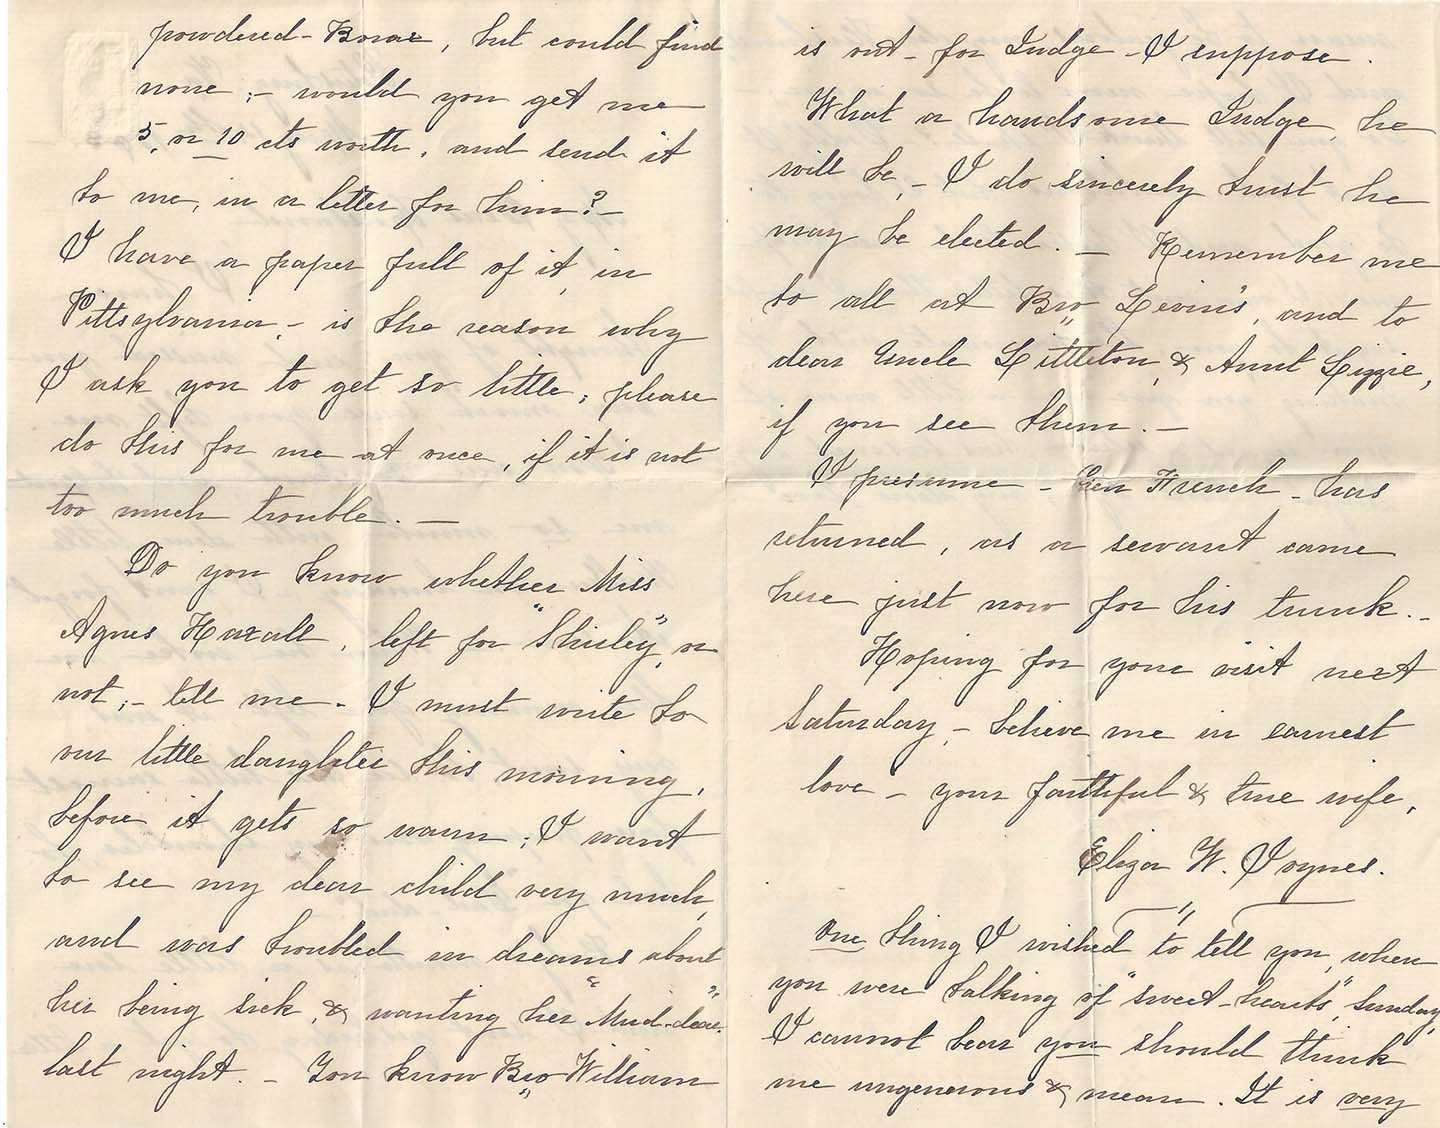 powdered - Borax, but could find
none ; - would you get me
5, or 10 cts worth, and send it
to me, in a letter for him? -
I have a paper full of it, in
Pittsylvania, - is the reason why
I ask you to get so little, please
do this for me at once, if it is not
too much trouble. -
Do you know whether Miss
Agnes Haxall, left for "Shirley", or
not ; - tell me - I must write to
our little daughter this morning,
before it gets so warm ; I want
to see my dear child very much,
and was troubled in dreams about
her being sick, & wanting her "Mud-dear"
last night. - You know Bro William
is out - for Judge - I suppose.
What a handsome Judge, he
will be, - I do sincerely trust he
may be elected. - Remember me
to all at Bro Levin's, and to
dear Uncle Littleton, & Aunt Lizzie,
if you see them. -
I presume - Gen French - has
returned, as a servant came
here just now for his trunk. -
Hoping for your visit next
Saturday, - believe me in earnest
love - your faithful & true wife,
Eliza W. Joynes.
One thing I wished to tell you, when
you were talking of "sweet-hearts", Sunday,
I cannot bear you should think
me ungenerous & mean. It is very